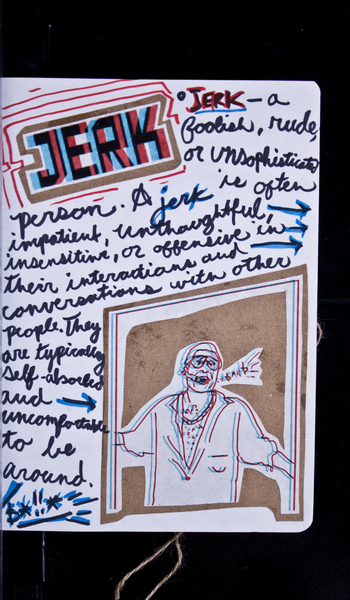 JERK
JERK - a
foolish, rude,
or unsophisticated
person. A jerk is often
impatient, unthoughtful,
insensitive, or offensive in
their interactions and
conversations with other
people. They
are typically
self-absorbed
and
uncomfortable
to be
around.
$*!!*